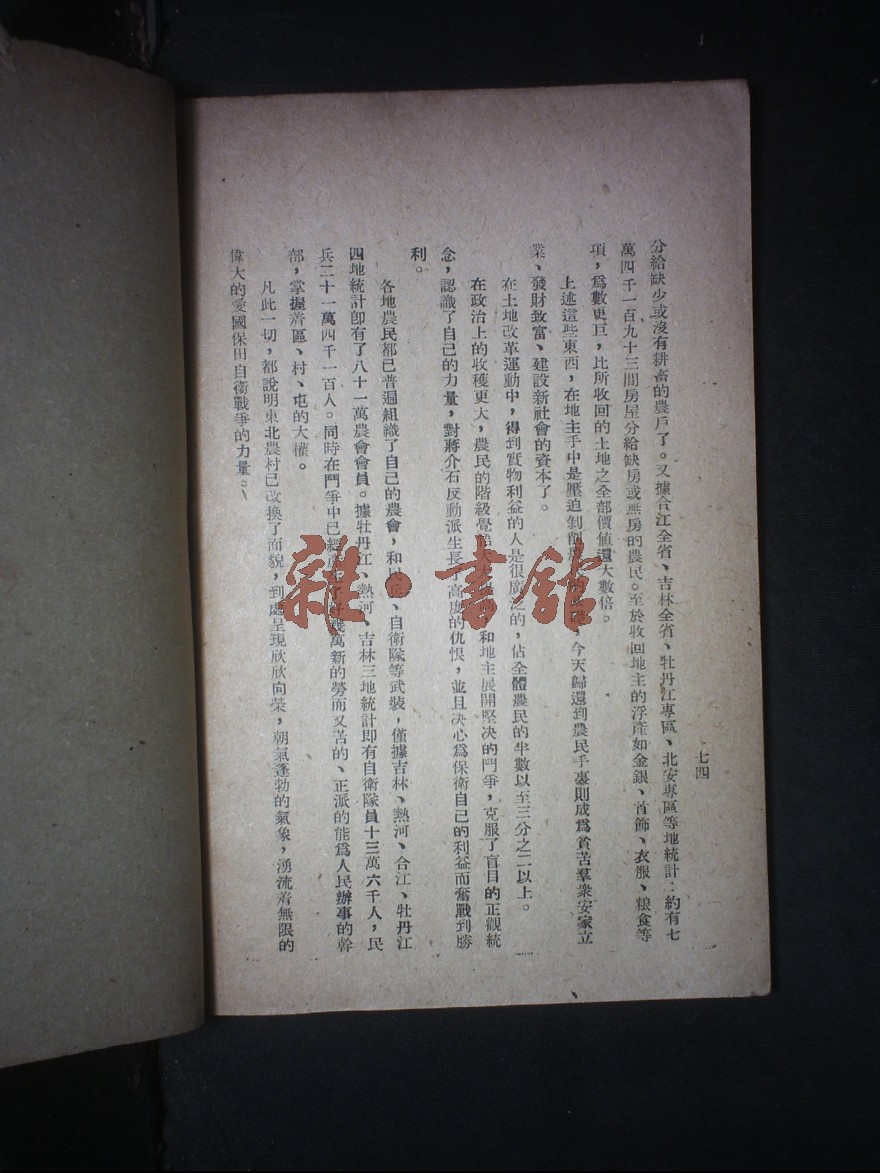 七四
分給缺少或沒有耕畜的農戶了。又據合江全省、吉林全省、牡丹江專區、北安專區等地統計：約有七
萬四千一百九十三間房屋分給缺房或無房的農民。至於收回地主的浮產如金銀、首飾、衣服、粮食等
項，為數更巨，比所收回的土地之全部價值還大數倍。
上述這些東西，在地主手中是壓迫剝削，今天歸還到農民手裏則成為貧苦羣衆安家立
業、發財致富、建設新社會的資本了。
在土地改革運動中，得到實物利益的人是很廣泛的，佔全體農民的半數以至三分之二以上。
在政治上的收穫更大，農民的階級覺悟和地主展開堅决的鬥爭，克服了盲目的正觀統
念，認識了自己的力量，對蔣介石反動派生長了高度的仇恨，並且决心為保衛自己的利益而奮戰到勝
利。
各地農民都已普遍組織了自己的農會，和民兵、自衛隊等武裝，僅據吉林、熱河、合江、牡丹江
四地統計卽有了八十一萬農會會員。據牡丹江、熱河、吉林三地統計即有自衛隊員十三萬六千人，民
兵二十一萬四千一百人。同時在鬥爭中已經好幾萬新的勞而又苦的、正派的能為人民辦事的幹
部，掌握着區、村、屯的大權。
凡此一切，都說明東北農村已改換了面貌，到處呈現欣欣向榮，朝氣蓬勃的氣象，湧流着無限的
偉大的愛國保田自衛戰爭的力量。
雜·書舘